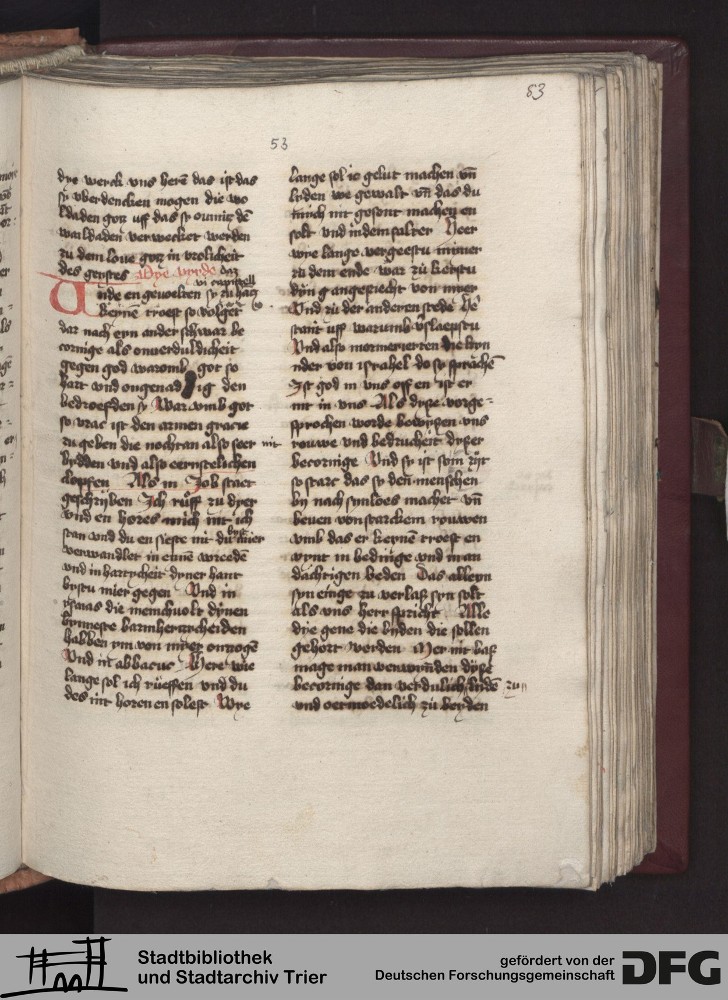 53
53
dye werck vns herē das ist das
sy vberdencken mogen die wo
ldaden gotz uff das sy oumitz dē
waildaden verwecket werden
zu dem loue gotz in vrolicheit
des geystes Dye vyrde daz
vi capittell
Unde en geuoelten sy zu hātz
keynē troest so volget
dar nach eyn ander schwar be
cornige als onuerduldicheit
gegen god waromb got so
hart vnd ongenadig den
bedroefden sy War vmb got
so vrac ist den armen gracie
zu geben die nochtan also seer
bydden vnd also eernstelichen
clopfen Als in Job staet
geschrijben Ich rüff zu dyer
vnd en hores mich nit ich
stan vnd du en sieste mit du bist mier
verwandlet in einē wreedē
vnd in hartycheit dyner hant
bystu mier gegen Vnd in
ysaias die menichuolt dynen
bynneste barmhertzcheiden
habben ym von myer ontzogē
Vnd in abbacuc Here wie
lange sol ich rüeffen vnd du
des nit horen en solest Wye
lange sol ic gelut machen vn̄
lyden we gewalt vn̄ das du
mich nit gesont machen en
solt vnd in dem salter Heer
wye lange vergeestu mimer
zu dem ende war zü kerstu
dyn̄ g angesiecht von myer
Vnd zü der anderen stede He
stant uff warumb vslaepstu
Vnd also mormerierten die kyn
nder von israhel do sy sprächen
Ist god in vns off en ist er
nit in vns Als dyse vorge-
sprochen worde bewysen vns
nit rouwe vnd bedrucheit dyser
becornige Vnd sy ist som zijt
so starc das so den menschen
by nach synloes machet vn̄
beuen von starckem rouwen
vmb das er keynē troest en
vynt in bednige vnd in an
dachtigen beden Das alleyn
syn einge zu verlaß syn solt
als vns herr spricht Alle
dye gene die byden die sollen
gehort werden Mer nit baß
mage man verwynden dyse
becornige dan verdulich lidē zu
vnd oetmoedelich zü beyden
Stadtbibliothek
und Stadtarchiv Trier
gefördert von der
Deutschen Forschungsgemeinschaft
DFG